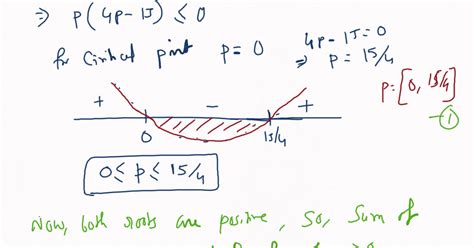 ⇒ p(4p-15) ≤ 0
for Critical point p=0 4p-15=0
⇒ p = 15/4
p=[0, 15/4]
①
+ - +
0 15/4
0 ≤ p ≤ 15/4
Now, both roots are positive, So, Sum of